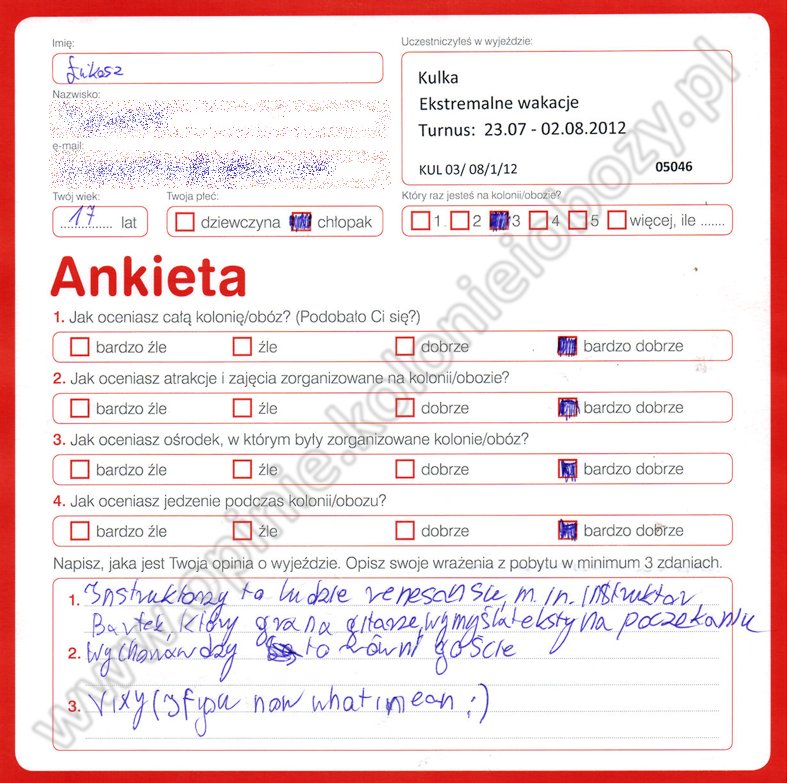 Imię:
Łukasz
Nazwisko:
e-mail:
Twój wiek:
17 lat
Twoja płeć:
dziewczyna chłopak
Uczestniczyłeś w wyjeździe:
Kulka
Ekstremalne wakacje
Turnus: 23.07 - 02.08.2012
KUL 03/ 08/1/12 05046
Który raz jesteś na kolonii/obozie?
1 2 3 4 5 więcej, ile .......
Ankieta
1. Jak oceniasz całą kolonię/obóz? (Podobało Ci się?)
bardzo źle źle dobrze bardzo dobrze
2. Jak oceniasz atrakcje i zajęcia zorganizowane na kolonii/obozie?
bardzo źle źle dobrze bardzo dobrze
3. Jak oceniasz ośrodek, w którym były zorganizowane kolonie/obóz?
bardzo źle źle dobrze bardzo dobrze
4. Jak oceniasz jedzenie podczas kolonii/obozu?
bardzo źle źle dobrze bardzo dobrze
Napisz, jaka jest Twoja opinia o wyjeździe. Opisz swoje wrażenia z pobytu w minimum 3 zdaniach.
1. Instruktorzy to ludzie renesansu, m.in. instruktor
Bartek, który gra na gitarze, wymyśla teksty na poczekaniu
2. Wychowawdzy to równi goście
3. Vixy (If you now what i mean ;)
www.opinie.kolonieiobozy.pl